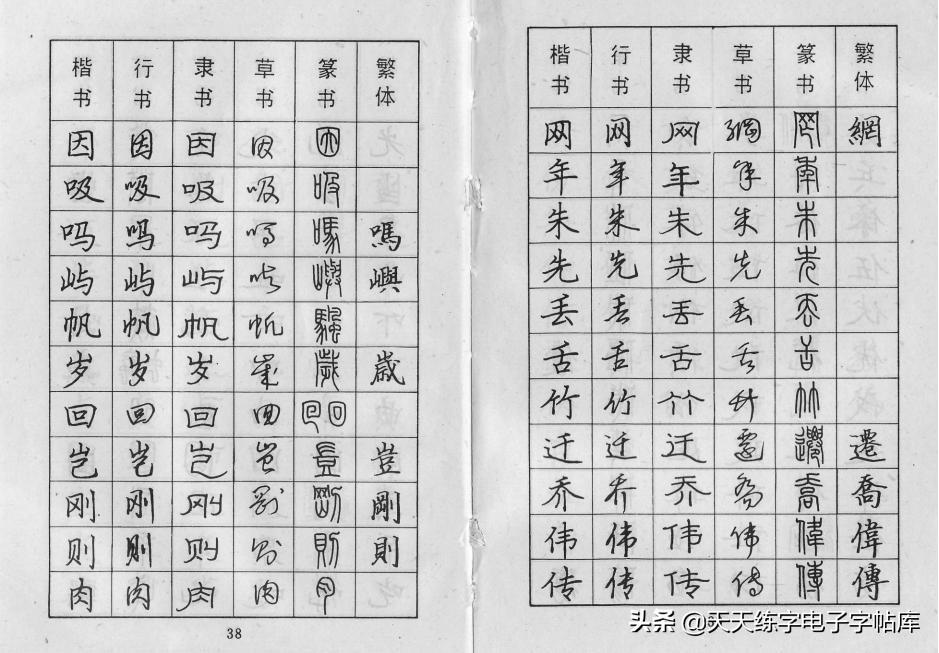 楷书 行书 隶书 草书 篆书 繁体
因 因 因 因 因
吸 吸 吸 吸 吸
吗 吗 吗 吗 嗎 嗎
屿 屿 屿 屿 嶼 嶼
帆 帆 帆 帆 帆
岁 岁 岁 歲 歲 歲
回 回 回 回 回回
岂 岂 岂 岂 豈 豈
刚 刚 刚 剛 剛 剛
则 则 则 则 則 則
肉 肉 肉 肉 肉
38
楷书 行书 隶书 草书 篆书 繁体
网 网 网 網 网 網
年 年 年 年 年
朱 朱 朱 朱 朱
先 先 先 先 先
丢 丢 丢 丢 丢
舌 舌 舌 舌 舌
竹 竹 竹 竹 竹
迁 迁 迁 遷 遷 遷
乔 乔 乔 喬 喬 喬
伟 伟 伟 伟 偉 偉
传 传 传 传 傳 傳
头条 @天天练字电子字帖库